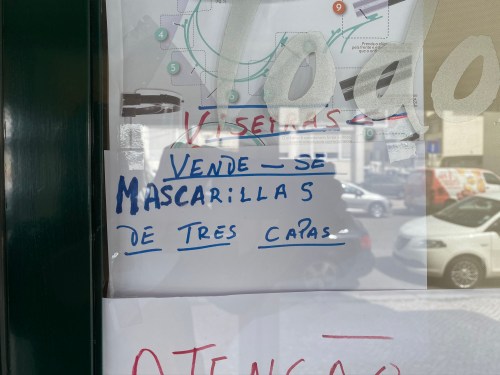 9
4
5
Todo
VISEIRAS
VENDE-SE
MASCARiLLAS
DE TRES CAPAS
ATENÇÃO